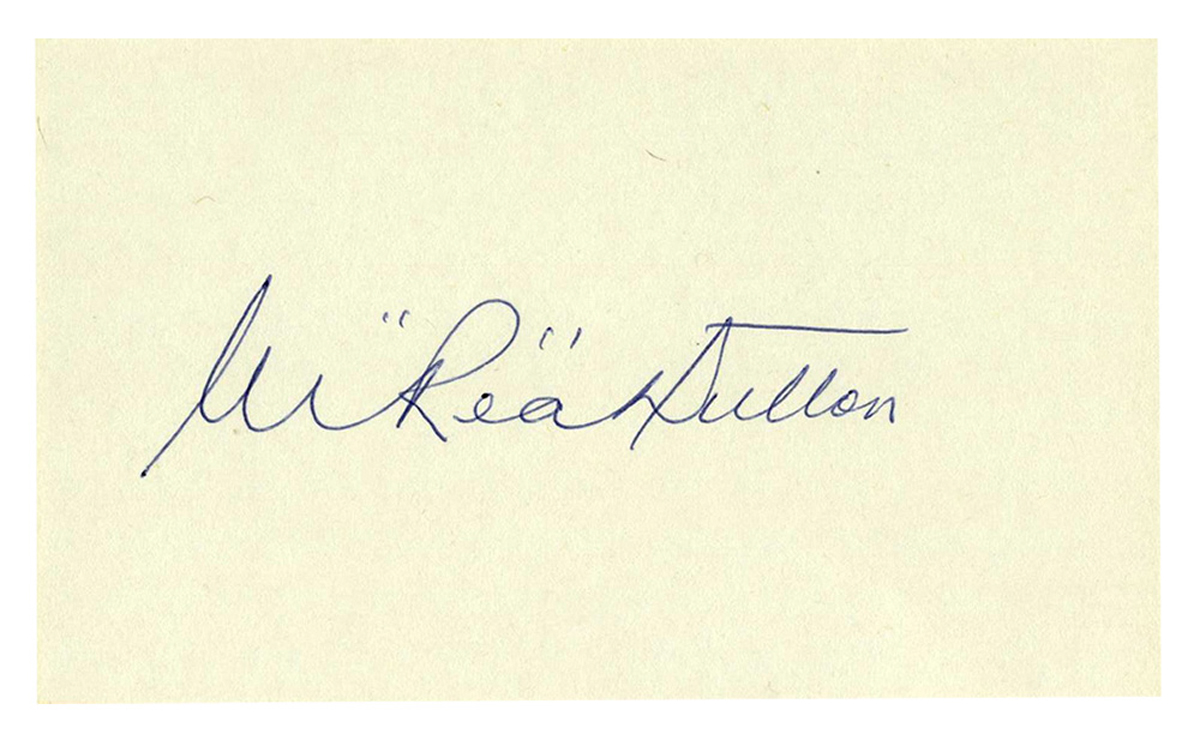 M "Red" Dutton